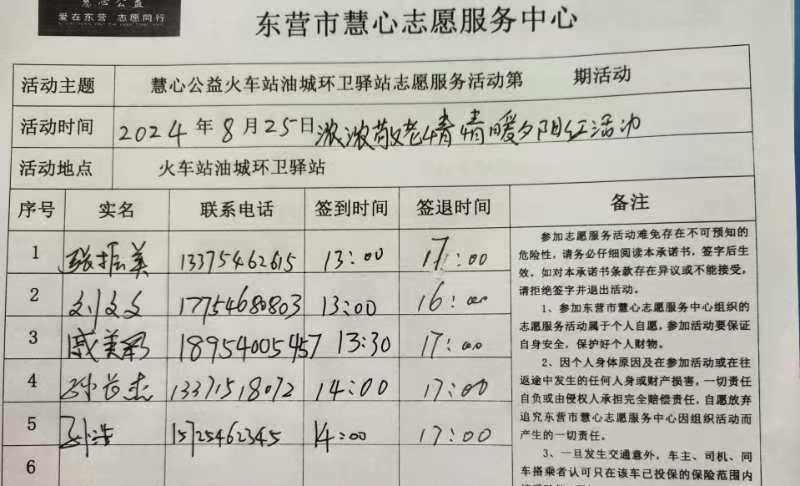 慧心公益
爱在东营 志愿同行
东营市慧心志愿服务中心
活动主题 慧心公益火车站油城环卫驿站志愿服务活动第 期活动
活动时间 2024年8月25日浓浓敬老情 情暖夕阳红活动
活动地点 火车站油城环卫驿站
序号 实名 联系电话 签到时间 签退时间 备注
1 张振美 13375462615 13:00 17:00
2 刘文文 17754680803 13:00 16:00
3 戚美彩 18954005457 13:30 17:00
4 孙长杰 13371518072 14:00 17:00
5 孙浩 15725462345 14:00 17:00
6
参加志愿服务活动难免存在不可预知的
危险性，请务必仔细阅读本承诺书，签字后生
效。如对本承诺书条款存在异议或不能接受，
请拒绝签字并退出活动。
1、参加东营市慧心志愿服务中心组织的
志愿服务活动属于个人自愿，参加活动要保证
自身安全，保护好个人财物。
2、因个人身体原因及在参加活动或在往
返途中发生的任何人身或财产损害，一切责任
自负或由侵权人承担完全赔偿责任，自愿放弃
追究东营市慧心志愿服务中心因组织活动而
产生的一切责任。
3、一旦发生交通意外，车主、司机、同
车搭乘者认可只在该车已投保的保险范围内